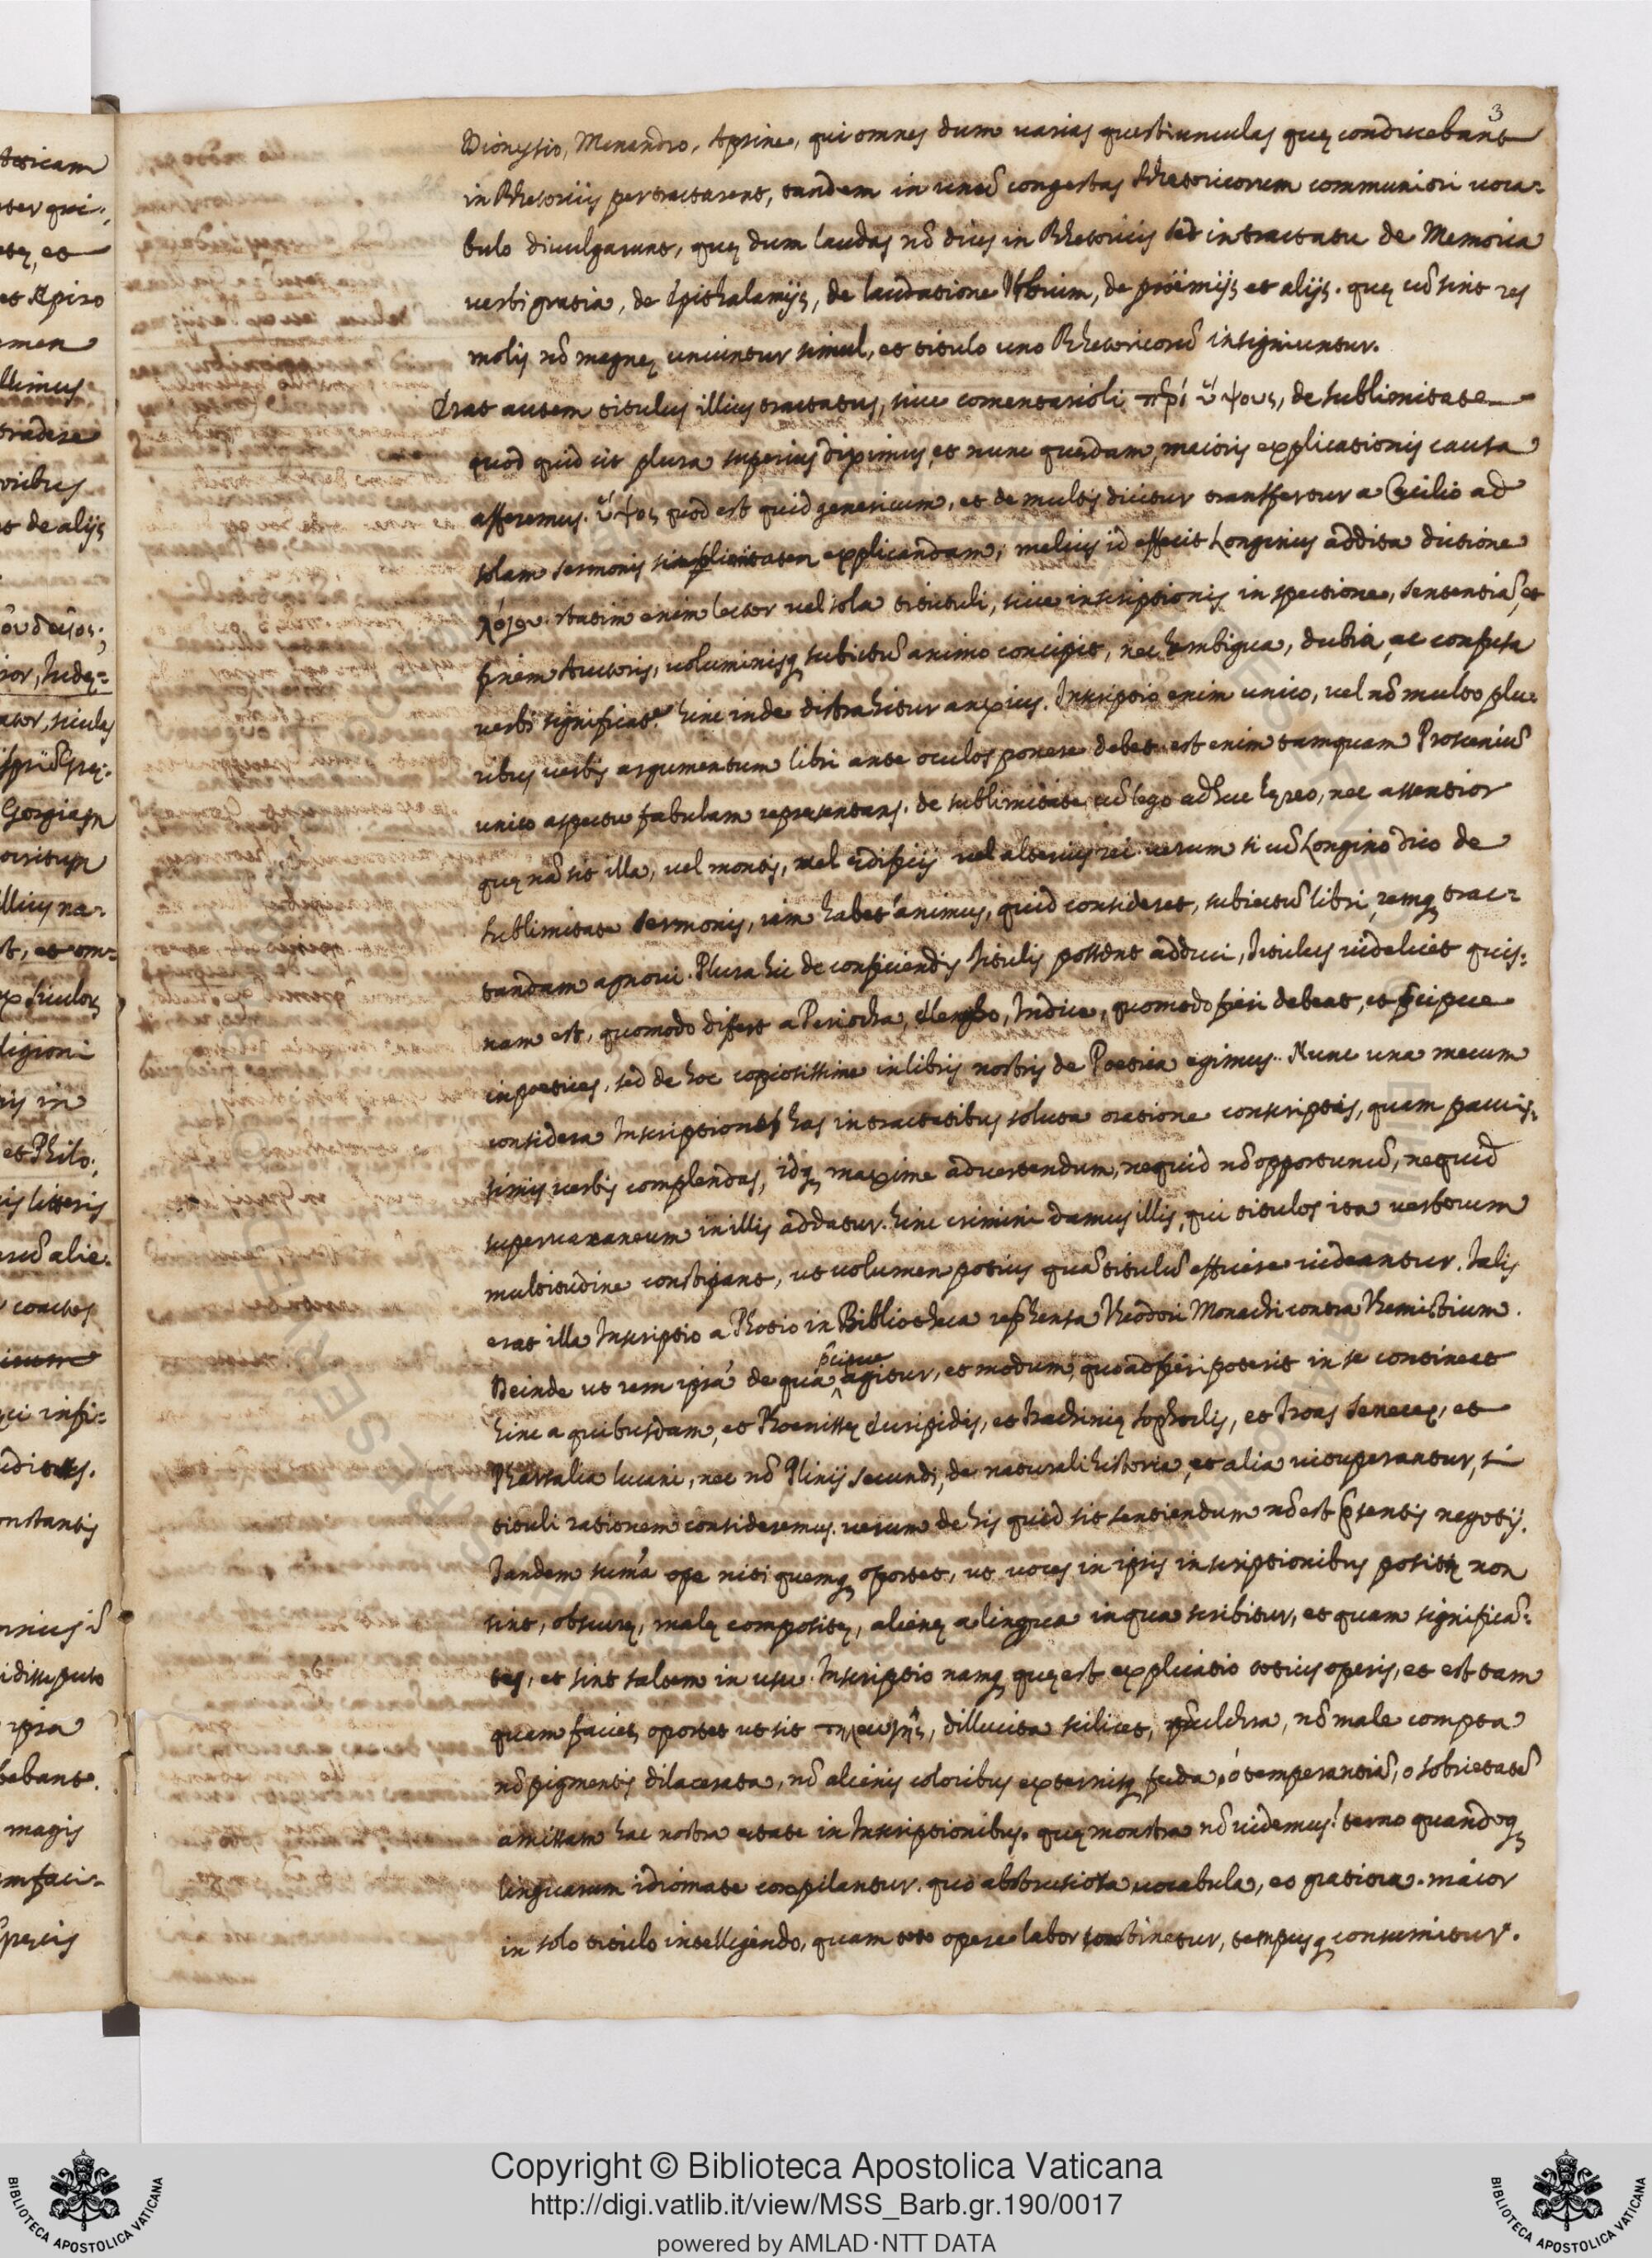 3
Dionysio, Menandro, Apsine, qui omnes dum varias questiunculas quę conducebant
in Rhetoricis pertractarent, tandem in unū congestas Rhetoricorum communiori voca=
bulo divulgarunt, quę dum laudas nō dices in Rhetoricis sed in tractatu de Memoria
verbi gratia, de Epithalamijs, de laudatione Urbium, de proēmijs et alijs. quę cū sint res
molis nō magnę uniuntur simul, et titulo uno Rhetoricorū insigniuntur.
Erat autem titulus illius tractatus, sive comentarioli πρὶ ὕψους, de sublimitate
quod quid sit plura superius diximus, et nunc quędam, maioris explicationis causa
afferemus. ὕψος quod est quid genericum, et de multis dicitur transfertur a Cęcilio ad
solam sermonis explicandam; melius id effecit Longinus addita dictione
λόγου. statim enim lector vel sola tituli, sive inscriptionis inspectione, sententiā, et
finem Auctoris, voluminisq subiectū animo concipit, nec ambigua, dubia, ac confusa
verbi significat. hinc inde distrahitur anxius. Inscriptio enim unico, vel nō multo plu=
ribus verbis argumentum libri ante oculos ponere debet. est enim tamquam Prosceniū
unico aspectu fabulam representans. de sublimitate cū lego adhuc hęreo, nec assentior
quę nā sit illa, vel montis, vel ędificij vel alterius rei. verum si cū Longino dico de
sublimitate sermonis, iam habet animus, quid consideret, subiectū libri, remq trac=
tandam agnovi. Plura hic de conficiendis titulis possent adduci, titulus videlicet quis=
nam est, quomodo difert a Periocha, elencho, Indice, quomodo fieri debeat, et p̄cipue
in poetices, sed de hoc copiosissime in libris nostris de Poetica egimus. Nunc una mecum
considera Inscriptiones has in tractatibus soluta oratione conscriptis, quam paucis=
simis verbis complendas, idq maxime advertendum, nequid nō opportunū, nequid
supervacaneum in illis addatur. hinc crimini damus illis, qui titulos ita verborum
multitudine constipant, ut volumen potius quā titulū efficere videantur. Talis
erat illa Inscriptio a Photio in Bibliotheca rep̄hensa Theodori Monachi contra Themistium.
Deinde ut rem ipsā de qua p̄cipue agitur, et modum, quoad fieri poterit in se contineat
hinc a quibusdam, et Phoenissę Euripidis, et Trachinię Sophoclis, et Troas Senecę, et
Pharsalia lucani, nec nō Plinij secundi, de naturali historia, et alia vituperantur, si
tituli rationem consideremus. verum de his quid sit sentiendum nō est p̄sentis negotij.
Tandem sumā ope niti quemq oportet, ut voces in ipsis inscriptionibus positę non
sint, obscurę, malę compositę, alienę a lingua in qua scribitur, et quam significā=
tes, et sint saltem in usu. Inscriptio namq quę est explicatio totius operis, et est tam
quam facies, oportet ut sit τηλαυγὴς, dillucida scilicet, pulchra, nō male compta
nō pigmentis dilacerata, nō alienis coloribus externisq fęda, ó temperantiā, o sobrietatē
amissam hac nostra ętate in Inscriptionibus. quę monstra nō videmus! terno quandoq
linguarum idiomate compilantur. quo abstrusiora vocabula, eo gratiora. maior
in solo titulo intelligendo, quam toto opere labor sustinetur, tempusq consumitur.
Copyright © Biblioteca Apostolica Vaticana
http://digi.vatlib.it/view/MSS_Barb.gr.190/0017
powered by AMLAD·NTT DATA
BIBLIOTECA APOSTOLICA VATICANA
BIBLIOTECA APOSTOLICA VATICANA